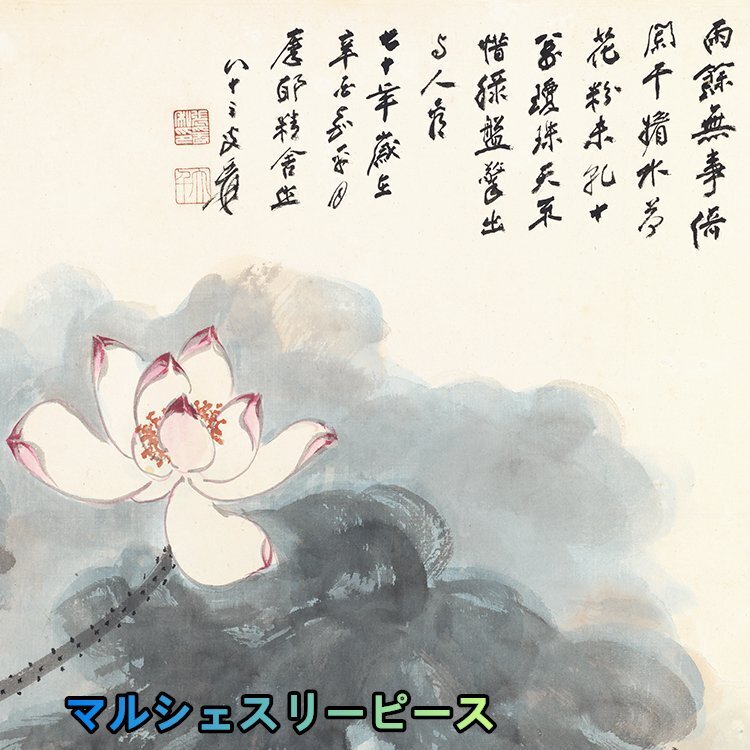 雨餘無事倚
闌干媚水荷
花粉未乾十
萬瓊珠天不
惜綠盤擎出
与人看
七十年歲在
辛酉嘉平月
摩耶精舍
八十三叟爰
マルシェスリーピース